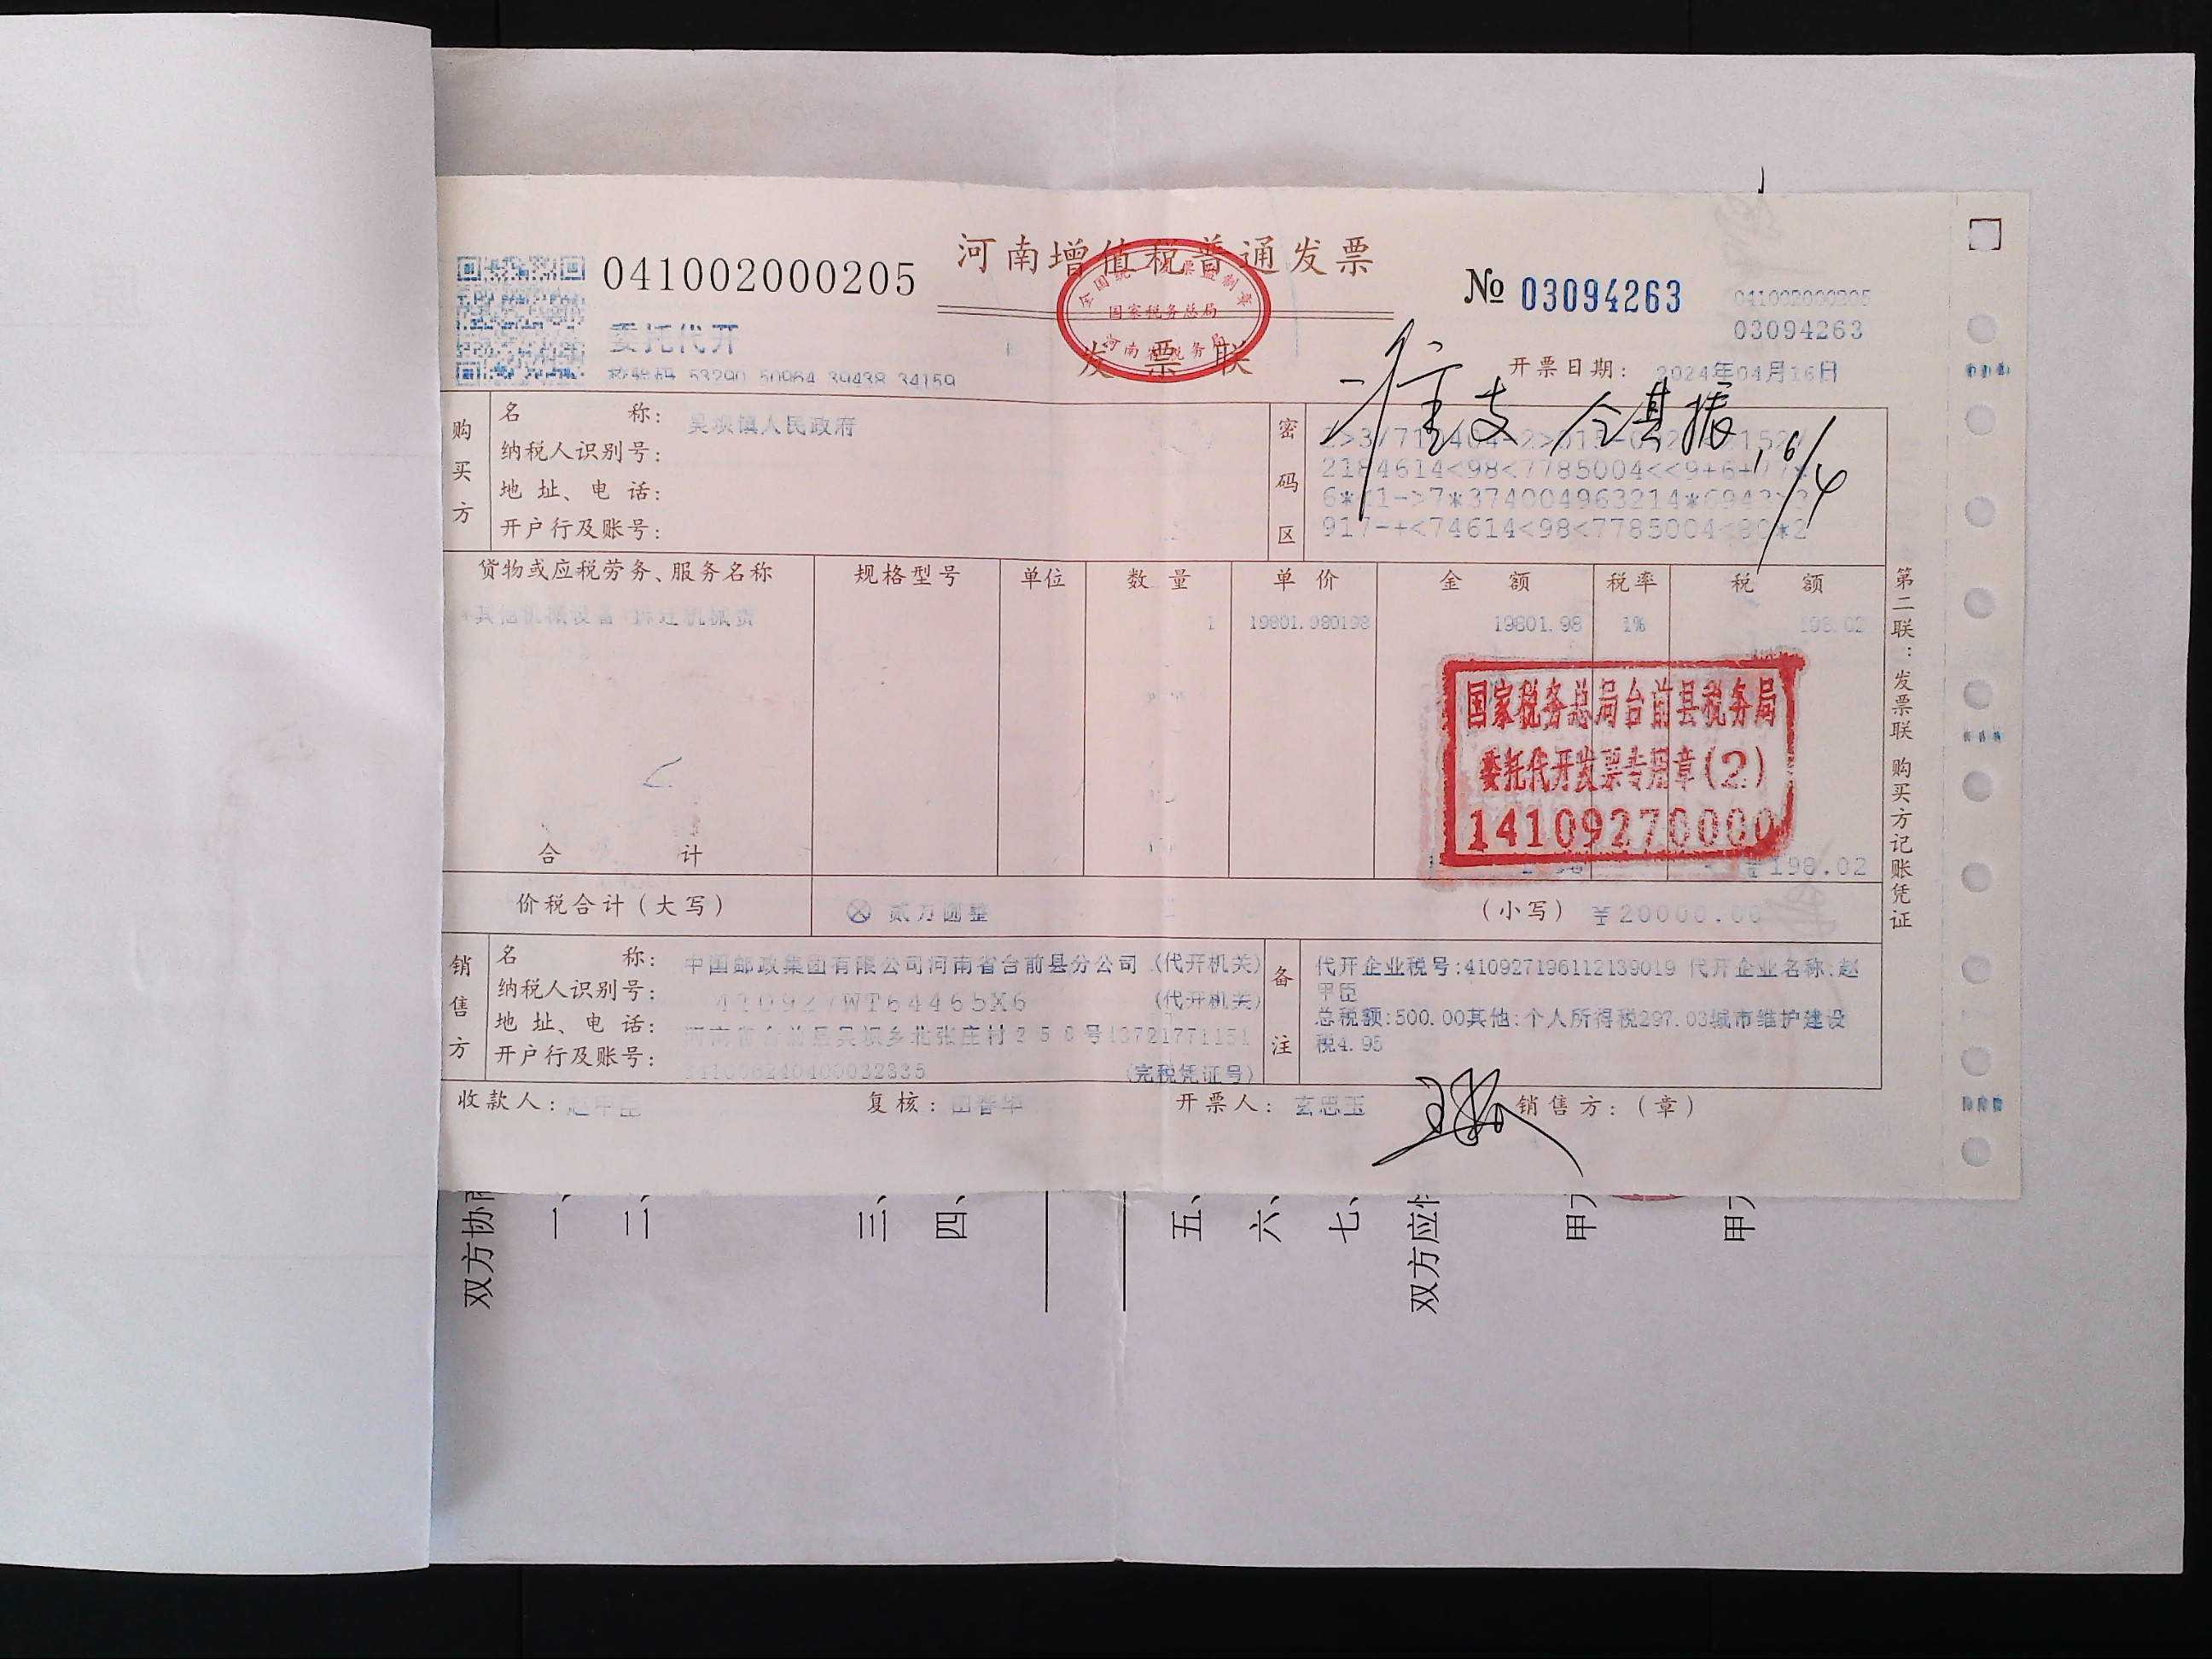 河南增值税普通发票
041002000205
№ 03094263
041002000205
03094263
委托代开
全国统一发票监制章
国家税务总局
河南省税务局
发票联
校验码 53290 50964 39438 34159
开票日期: 2024年04月16日
准支
16/4
购买方
名称: 吴坝镇人民政府
纳税人识别号:
地址、电话:
开户行及账号:
密码区
2184614<98<7785004<<9+6+77*
917-+<74614<98<7785004<80*2
货物或应税劳务、服务名称 规格型号 单位 数量 单价 金额 税率 税额
*其他机械设备*拆迁机械费 1 19801.980198 19801.98 1% 198.02
国家税务总局台前县税务局
委托代开发票专用章(2)
14109270000
合计 ¥198.02
价税合计(大写) ⊗ 贰万圆整 (小写) ¥20000.00
销售方
名称: 中国邮政集团有限公司河南省台前县分公司 (代开机关)
纳税人识别号: 410927WT64465X6 (代开机关)
地址、电话: 河南省台前县吴坝乡北张庄村256号13721771151
开户行及账号: (完税凭证号)
备注
代开企业税号:410927196112139019 代开企业名称:赵
甲臣
总税额:500.00其他:个人所得税297.03城市维护建设
税4.95
收款人: 赵甲臣 复核: 开票人: 玄思玉 销售方:(章)
第二联:发票联 购买方记账凭证
双方协
一、
二、
三、
四、
五、
六、
七、
双方应
甲
甲